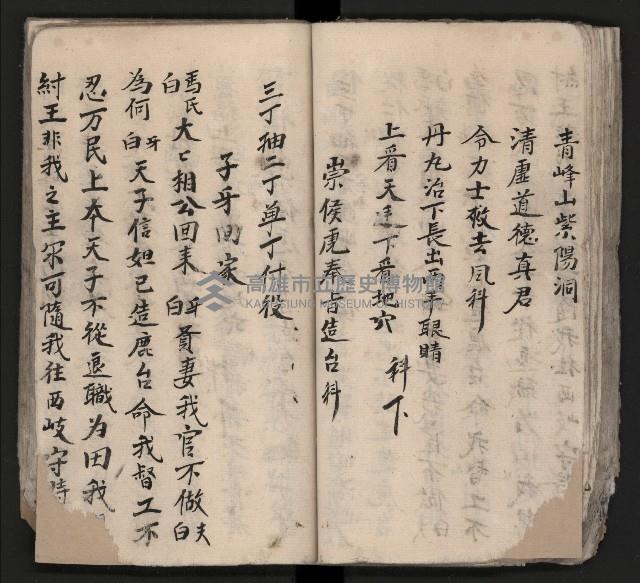 青峰山紫陽洞
清虛道德真君
令力士救去風科
丹丸治下長出兩手眼睛
上看天達下看地穴 科下
崇侯虎奉旨造台科
三丁抽二丁單丁仕役
子牙回家
馮氏白 大〻相公回來 牙白 賢妻我官不做 夫白
為何 牙白 天子信妲己造鹿台命我督工不
忍万民上本天子不從退職為田我
紂王非我之主 可隨我往西岐守時
高雄市立歷史博物館
KAOHSIUNG MUSEUM OF HISTORY